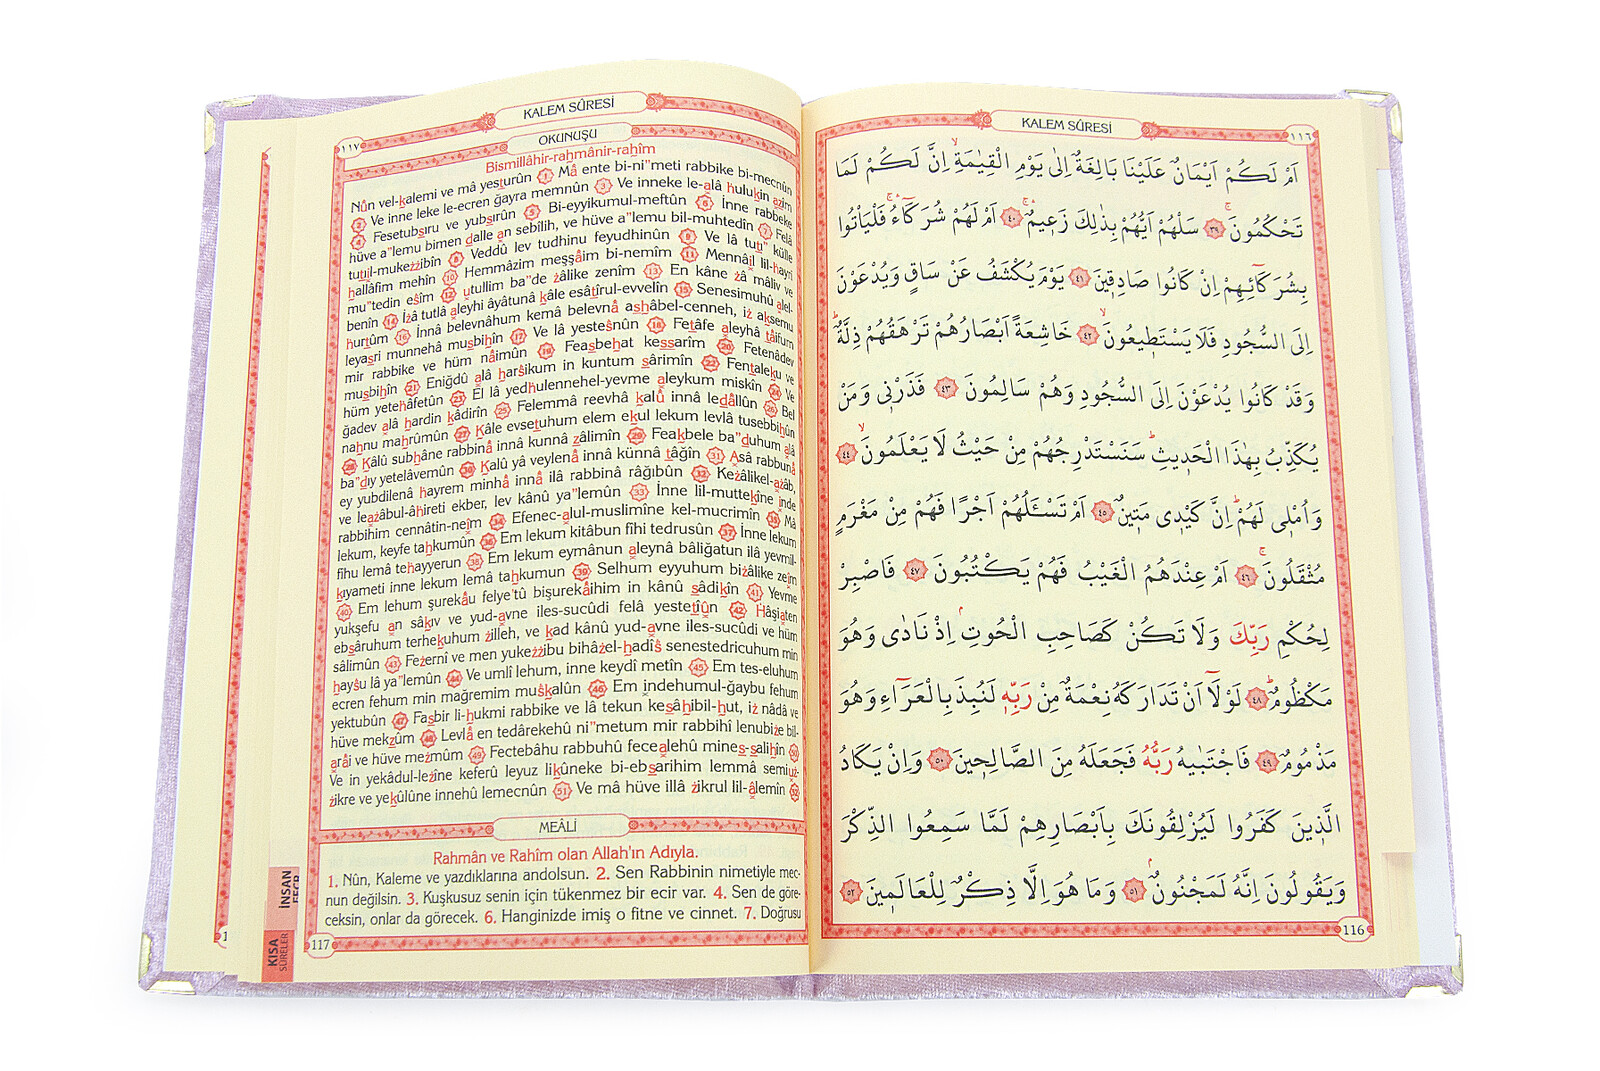 KALEM SÛRESİ
١١٦
اَمْ لَكُمْ اَيْمَانٌ عَلَيْنَا بَالِغَةٌ اِلٰى يَوْمِ الْقِيٰمَةِۙ اِنَّ لَكُمْ لَمَا
تَحْكُمُونَۚ ﴿٣٩﴾ سَلْهُمْ اَيُّهُمْ بِذٰلِكَ زَع۪يمٌۚۛ ﴿٤٠﴾ اَمْ لَهُمْ شُرَكَٓاءُۚۛ فَلْيَأْتُوا
بِشُرَكَٓائِهِمْ اِنْ كَانُوا صَادِق۪ينَ ﴿٤١﴾ يَوْمَ يُكْشَفُ عَنْ سَاقٍ وَيُدْعَوْنَ
اِلَى السُّجُودِ فَلَا يَسْتَط۪يعُونَۙ ﴿٤٢﴾ خَاشِعَةً اَبْصَارُهُمْ تَرْهَقُهُمْ ذِلَّةٌۜ
وَقَدْ كَانُوا يُدْعَوْنَ اِلَى السُّجُودِ وَهُمْ سَالِمُونَ ﴿٤٣﴾ فَذَرْن۪ي وَمَنْ
يُكَذِّبُ بِهٰذَا الْحَد۪يثِۜ سَنَسْتَدْرِجُهُمْ مِنْ حَيْثُ لَا يَعْلَمُونَۙ ﴿٤٤﴾
وَاُمْل۪ي لَهُمْۜ اِنَّ كَيْد۪ي مَت۪ينٌ ﴿٤٥﴾ اَمْ تَسْـَٔلُهُمْ اَجْرًا فَهُمْ مِنْ مَغْرَمٍ
مُثْقَلُونَۚ ﴿٤٦﴾ اَمْ عِنْدَهُمُ الْغَيْبُ فَهُمْ يَكْتُبُونَ ﴿٤٧﴾ فَاصْبِرْ
لِحُكْمِ رَبِّكَ وَلَا تَكُنْ كَصَاحِبِ الْحُوتِۢ اِذْ نَادٰى وَهُوَ
مَكْظُومٌۜ ﴿٤٨﴾ لَوْلَٓا اَنْ تَدَارَكَهُ نِعْمَةٌ مِنْ رَبِّه۪ لَنُبِذَ بِالْعَرَٓاءِ وَهُوَ
مَذْمُومٌ ﴿٤٩﴾ فَاجْتَبٰيهُ رَبُّهُ فَجَعَلَهُ مِنَ الصَّالِح۪ينَ ﴿٥٠﴾ وَاِنْ يَكَادُ
الَّذ۪ينَ كَفَرُوا لَيُزْلِقُونَكَ بِاَبْصَارِهِمْ لَمَّا سَمِعُوا الذِّكْرَ
وَيَقُولُونَ اِنَّهُ لَمَجْنُونٌۢ ﴿٥١﴾ وَمَا هُوَ اِلَّا ذِكْرٌ لِلْعَالَم۪ينَ ﴿٥٢﴾
116
KALEM SÛRESİ
١١٧
OKUNUŞU
Bismillâhir-rahmânir-rahîm
Nûn vel-kalemi ve mâ yesturûn 1 Mâ ente bi-ni"meti rabbike bi-mecnûn
2 Ve inne leke le-ecren ğayra memnûn 3 Ve inneke le-alâ hulukin azîm
4 Fesetubsıru ve yubsırûn 5 Bi-eyyikumul-meftûn 6 İnne rabbeke
hüve a"lemu bimen dalle an sebîlih, ve hüve a"lemu bil-muhtedîn 7 Felâ
tutıil-mukezzibîn 8 Veddû lev tudhinu feyudhinûn 9 Ve lâ tutı" külle
hallâfim mehîn 10 Hemmâzim meşşâim bi-nemîm 11 Mennâıl lil-hayri
mu"tedin esîm 12 utullim ba"de zâlike zenîm 13 En kâne zâ mâliv ve
benîn 14 İzâ tutlâ aleyhi âyâtunâ kâle esâtîrul-evvelîn 15 Senesimuhû alel-
hurtûm 16 İnnâ belevnâhum kemâ belevnâ ashâbel-cenneh, iz aksemu
leyasri munnehâ musbihîn 17 Ve lâ yestesnûn 18 Fetâfe aleyhâ tâifum
mir rabbike ve hüm nâimûn 19 Feasbehat kessarîm 20 Fetenâdev
musbihîn 21 Eniğdû alâ harsikum in kuntum sârimîn 22 Fentaleku ve
hüm yetehâfetûn 23 El lâ yedhulennehel-yevme aleykum miskîn 24 Ve
ğadev alâ hardin kâdirîn 25 Felemmâ reevhâ kalû innâ ledâllûn 26 Bel
nahnu mahrûmûn 27 Kâle evsetuhum elem ekul lekum levlâ tusebbihûn
28 Kâlû subhâne rabbinâ innâ kunnâ zâlimîn 29 Feakbele ba"duhum alâ
ba"dıy yetelâvemûn 30 Kalû yâ veylenâ innâ künnâ tâğîn 31 Asâ rabbunâ
ey yubdilenâ hayrem minhâ innâ ilâ rabbinâ râğıbûn 32 Kezâlikel-azâb,
ve leazâbul-âhireti ekber, lev kânû ya"lemûn 33 İnne lil-muttekîne inde
rabbihim cennâtin-neîm 34 Efenec-alul-muslimîne kel-mucrimîn 35 Mâ
lekum, keyfe tahkumûn 36 Em lekum kitâbun fîhi tedrusûn 37 İnne lekum
fîhu lemâ tehayyerun 38 Em lekum eymânun aleynâ bâliğatun ilâ yevmil-
kıyameti inne lekum lemâ tahkumun 39 Selhum eyyuhum bizâlike zeîm
40 Em lehum şurekâu felye'tû bişurekâihim in kânû sâdikîn 41 Yevme
yukşefu an sâkıv ve yud-avne iles-sucûdi felâ yestetîûn 42 Hâşiaten
ebsâruhum terhekuhum zilleh, ve kad kânû yud-avne iles-sucûdi ve hüm
sâlimûn 43 Fezernî ve men yukezzibu bihâzel-hadîs senestedricuhum min
haysu lâ ya"lemûn 44 Ve umlî lehum, inne keydî metîn 45 Em tes-eluhum
ecren fehum min mağremim muskalûn 46 Em indehumul-ğaybu fehum
yektubûn 47 Fasbir li-hukmi rabbike ve lâ tekun kesâhibil-hut, iz nâdâ ve
hüve mekzûm 48 Levlâ en tedârekehû ni"metum mir rabbihî lenubize bil-
arâi ve hüve mezmûm 49 Fectebâhu rabbuhû fecealehû mines-salihîn 50
Ve in yekâdul-lezîne keferû leyuz likûneke bi-ebsarihim lemmâ semiuz-
zikre ve yekûlûne innehû lemecnûn 51 Ve mâ hüve illâ zikrul lil-âlemîn 52
MEÂLİ
Rahmân ve Rahîm olan Allah'ın Adıyla.
1. Nûn, Kaleme ve yazdıklarına andolsun. 2. Sen Rabbinin nimetiyle mec-
nun değilsin. 3. Kuşkusuz senin için tükenmez bir ecir var. 4. Sen de göre-
ceksin, onlar da görecek. 6. Hanginizde imiş o fitne ve cinnet. 7. Doğrusu
117
İNSAN
KISA
SÛRELER